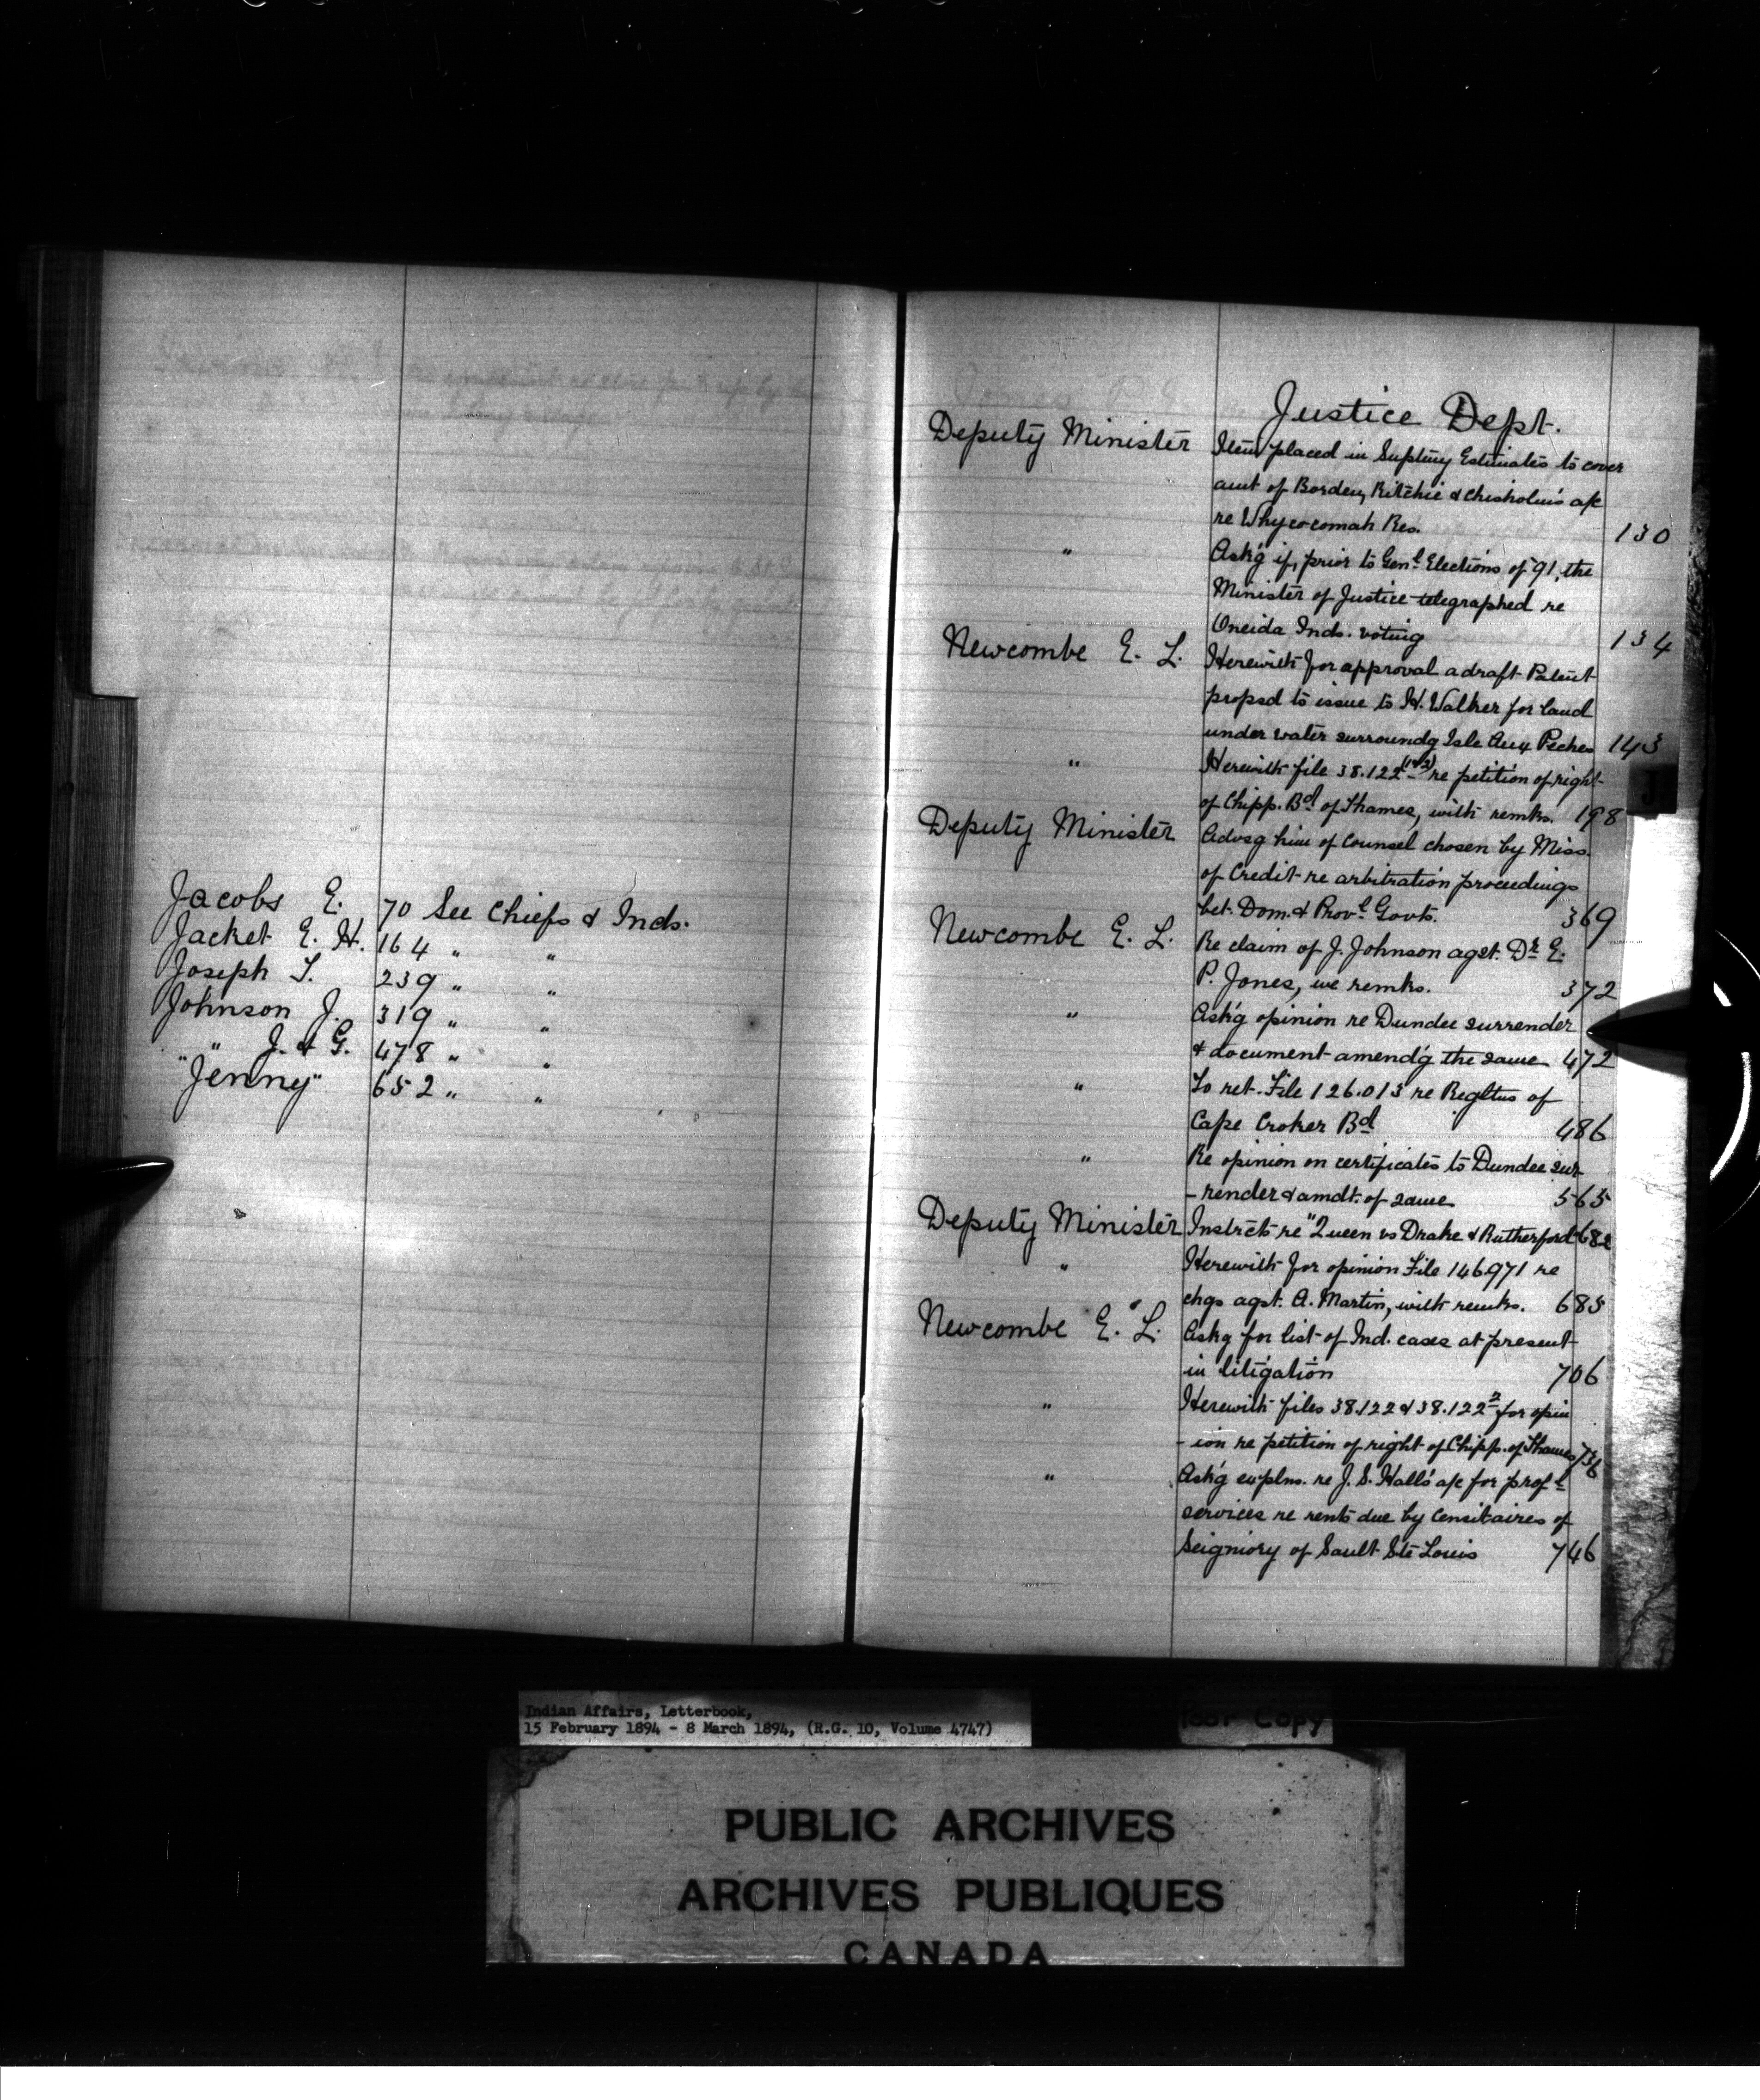 Jacobs E. 70 See Chiefs & Inds.
Jacket E. H. 164 " "
Joseph T. 239 " "
Johnson J. 319 " "
" " J. & G. 478 " "
"Jenny" 652 " "
Justice Dept.
Deputy Minister Item placed in Suptmy Estimates to cover
amt of Borden, Ritchie & Chisholm's a/c
re Whycocomah Res. 130
" Ask'g if, prior to Genl Elections of 91, the
Minister of Justice telegraphed re
Oneida Inds. voting 134
Newcombe E. L. Herewith for approval a draft Patent
propsd to issue to H. Walker for land
under water surroundg Isle Aux Peches 143
" Herewith file 38.122 (1&2) re petition of right
of Chipp. Bd of Thames, with remks. 198
Deputy Minister Advsg him of Counsel chosen by Miss.
of Credit re arbitration proceedings
bet. Dom. & Provl Govts. 369
Newcombe E. L. Re claim of J. Johnson agst. Dr E.
P. Jones, we remks. 372
" Ask'g opinion re Dundee surrender
& document amend'g the same 472
" To ret. File 126.013 re Regltns of
Cape Croker Bd 486
" Re opinion on certificates to Dundee sur-
-render & amdt. of same 565
Deputy Minister Instrcts re "Queen vs Drake & Rutherford" 682
" Herewith for opinion File 146971 re
chgs agst. A. Martin, with remks. 685
Newcombe E. L. Askg for list of Ind. cases at present
in litigation 706
" Herewith files 38.122 & 38.122² for opin
-ion re petition of right of Chipp. of Thames 736
" Ask'g explns. re J. S. Hall's a/c for profl
services re rents due by Censitaires of
Seigniory of Sault Ste Louis 746
J
Indian Affairs, Letterbook,
15 February 1894 - 8 March 1894, (R.G. 10, Volume 4747)
Poor Copy
PUBLIC ARCHIVES
ARCHIVES PUBLIQUES
CANADA